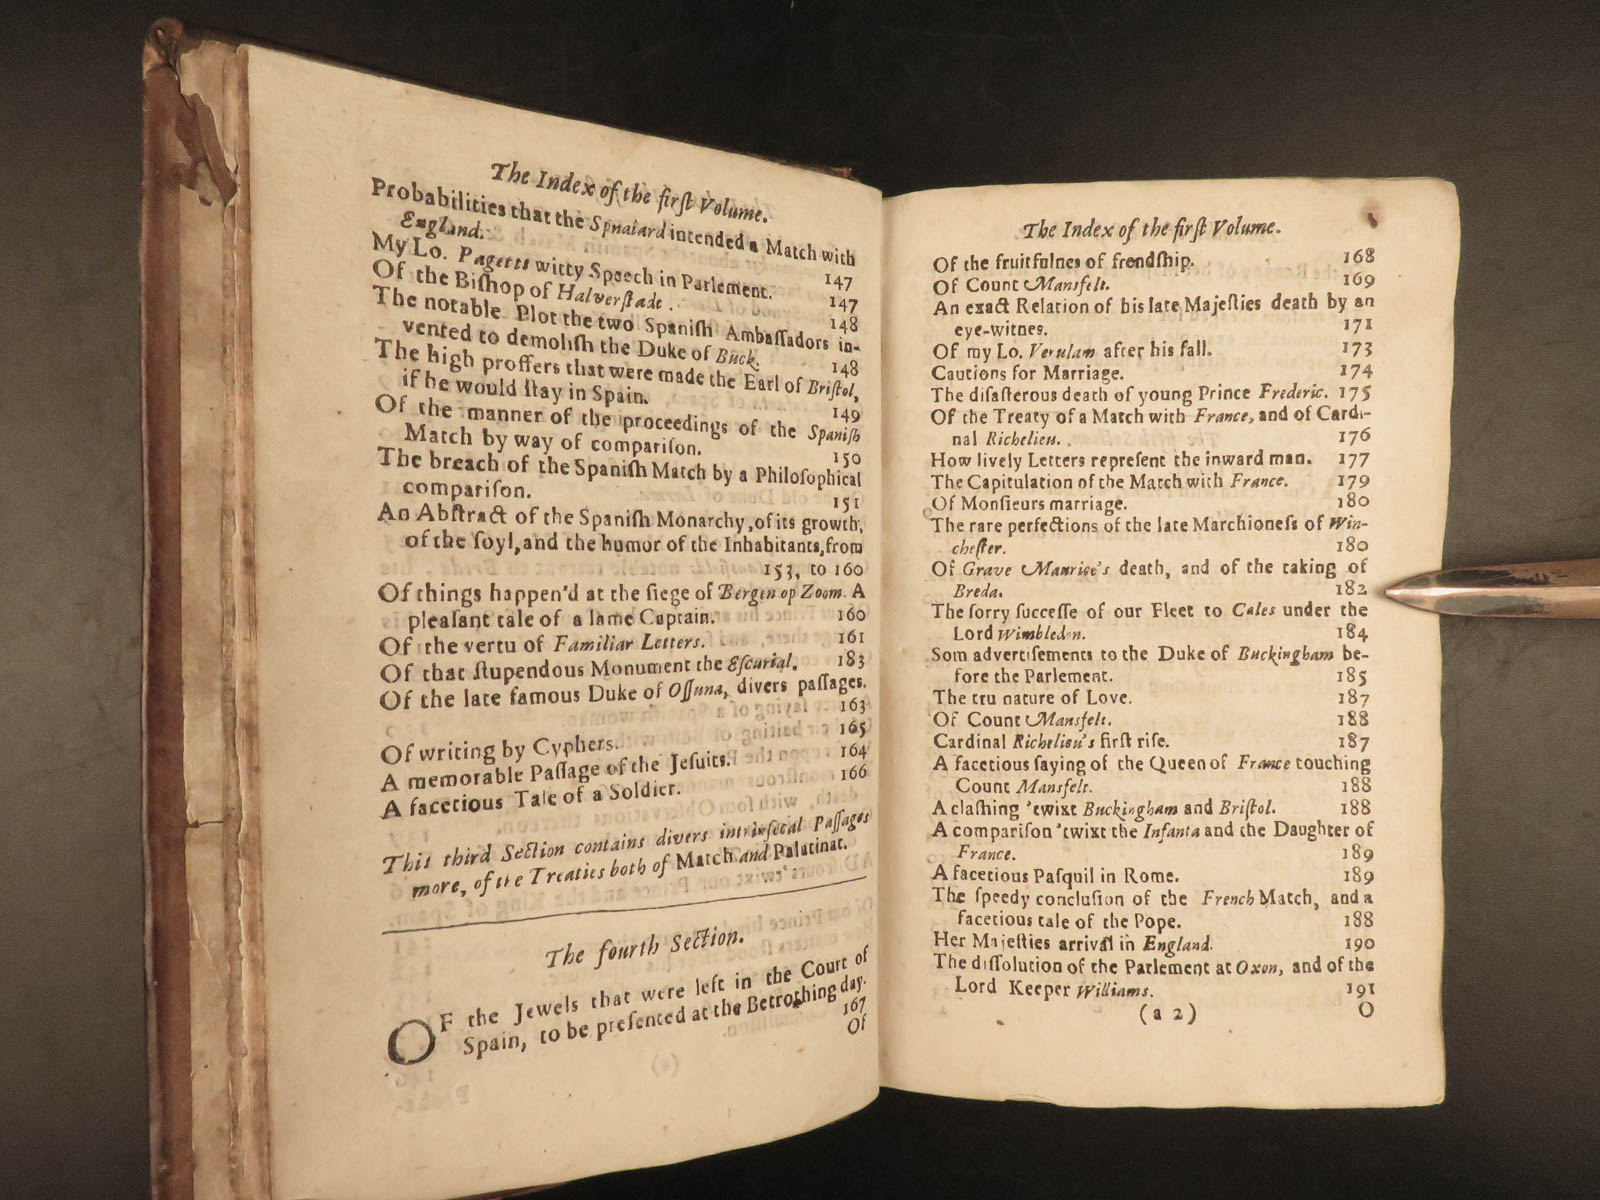 The Index of the first Volume.
Probabilities that the Spnaiard intended a Match with
England. 147
My Lo. Pagetts witty Speech in Parlement. 147
Of the Bishop of Halverstade. 148
The notable Plot the two Spanish Ambassadors in-
vented to demolish the Duke of Buck. 148
The high proffers that were made the Earl of Bristol,
if he would stay in Spain. 149
Of the manner of the proceedings of the Spanish
Match by way of comparison. 150
The breach of the Spanish Match by a Philosophical
comparison. 151
An Abstract of the Spanish Monarchy, of its growth,
of the soyl, and the humor of the Inhabitants, from
153, to 160
Of things happen'd at the siege of Bergen op Zoom. A
pleasant tale of a lame Captain. 160
Of the vertu of Familiar Letters. 161
Of that stupendous Monument the Escurial. 183
Of the late famous Duke of Ossuna, divers passages.
163
Of writing by Cyphers. 165
A memorable Passage of the Jesuits. 164
A facetious Tale of a Soldier. 166
This third Section contains divers intrinsecal Passages
more, of the Treaties both of Match and Palatinat.
The fourth Section.
OF the Jewels that were left in the Court of
Spain, to be presented at the Betrothing day.
167
Of
The Index of the first Volume.
Of the fruitfulnes of frendship. 168
Of Count Mansfelt. 169
An exact Relation of his late Majesties death by an
eye-witnes. 171
Of my Lo. Verulam after his fall. 173
Cautions for Marriage. 174
The disasterous death of young Prince Frederic. 175
Of the Treaty of a Match with France, and of Cardi-
nal Richelieu. 176
How lively Letters represent the inward man. 177
The Capitulation of the Match with France. 179
Of Monsieurs marriage. 180
The rare perfections of the late Marchioness of Win-
chester. 180
Of Grave Maurice's death, and of the taking of
Breda. 182
The sorry successe of our Fleet to Cales under the
Lord Wimbleden. 184
Som advertisements to the Duke of Buckingham be-
fore the Parlement. 185
The tru nature of Love. 187
Of Count Mansfelt. 188
Cardinal Richelieu's first rise. 187
A facetious saying of the Queen of France touching
Count Mansfelt. 188
A clashing 'twixt Buckingham and Bristol. 188
A comparison 'twixt the Infanta and the Daughter of
France. 189
A facetious Pasquil in Rome. 189
The speedy conclusion of the French Match, and a
facetious tale of the Pope. 188
Her Majesties arrival in England. 190
The dissolution of the Parlement at Oxon, and of the
Lord Keeper Williams. 191
(a 2) O